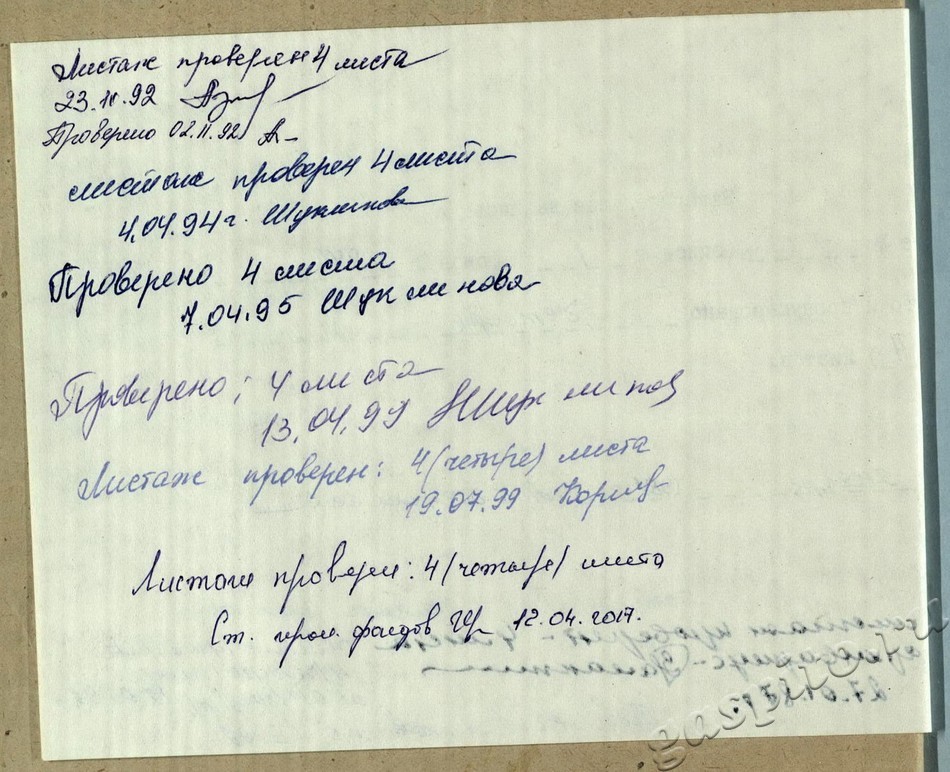 Листаж проверен 4 листа
23.11.92
Проверено 02.11.92
листаж проверен 4 листа
4.04.94 г. Шуклинова
Проверено 4 листа
7.04.95 Шуклинова
Проверено; 4 листа
13.04.99
Листаж проверен: 4 (четыре) листа
19.07.99
Листаж проверен: 4 (четыре) листа
Ст. хран. фондов 12.04.2017.